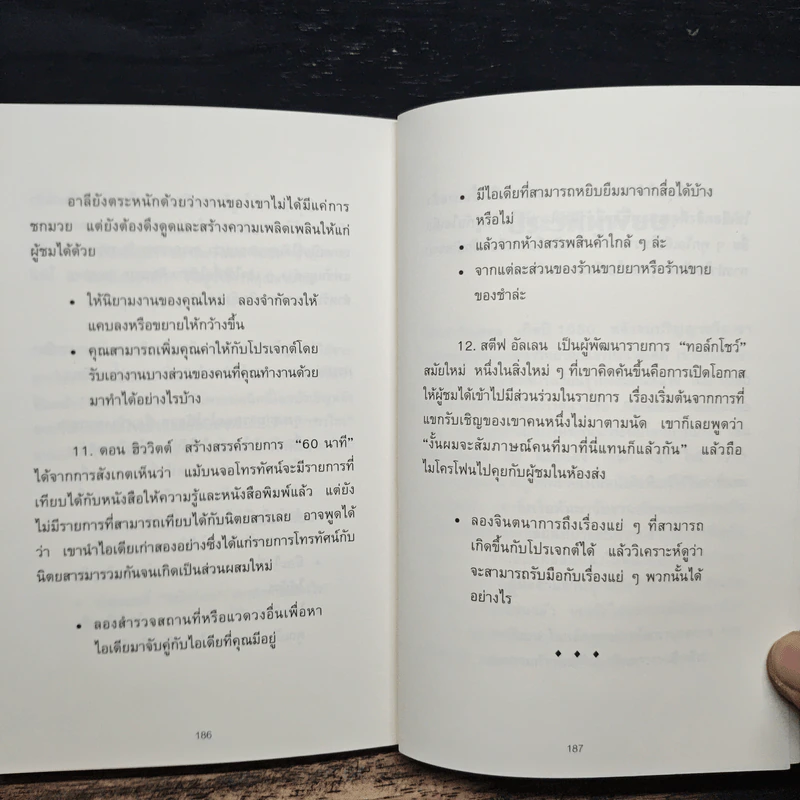 อาลียังตระหนักด้วยว่างานของเขาไม่ได้มีแค่การ
ชกมวย แต่ยังต้องดึงดูดและสร้างความเพลิดเพลินให้แก่
ผู้ชมได้ด้วย
• ให้นิยามงานของคุณใหม่ ลองจำกัดวงให้
แคบลงหรือขยายให้กว้างขึ้น
• คุณสามารถเพิ่มคุณค่าให้กับโปรเจกต์โดย
รับเอางานบางส่วนของคนที่คุณทำงานด้วย
มาทำได้อย่างไรบ้าง
11. ดอน ฮิววิตต์ สร้างสรรค์รายการ “60 นาที”
ได้จากการสังเกตเห็นว่า แม้บนจอโทรทัศน์จะมีรายการที่
เทียบได้กับหนังสือให้ความรู้และหนังสือพิมพ์แล้ว แต่ยัง
ไม่มีรายการที่สามารถเทียบได้กับนิตยสารเลย อาจพูดได้
ว่า เขานำไอเดียเก่าสองอย่างซึ่งได้แก่รายการโทรทัศน์กับ
นิตยสารมารวมกันจนเกิดเป็นส่วนผสมใหม่
• ลองสำรวจสถานที่หรือแวดวงอื่นเพื่อหา
ไอเดียมาจับคู่กับไอเดียที่คุณมีอยู่
186
• มีไอเดียที่สามารถหยิบยืมมาจากสื่อได้บ้าง
หรือไม่
• แล้วจากห้างสรรพสินค้าใกล้ ๆ ล่ะ
• จากแต่ละส่วนของร้านขายยาหรือร้านขาย
ของชำล่ะ
12. สตีฟ อัลเลน เป็นผู้พัฒนารายการ “ทอล์กโชว์”
สมัยใหม่ หนึ่งในสิ่งใหม่ ๆ ที่เขาคิดค้นขึ้นคือการเปิดโอกาส
ให้ผู้ชมได้เข้าไปมีส่วนร่วมในรายการ เรื่องเริ่มต้นจากการที่
แขกรับเชิญของเขาคนหนึ่งไม่มาตามนัด เขาก็เลยพูดว่า
“งั้นผมจะสัมภาษณ์คนที่มาที่นี่แทนก็แล้วกัน” แล้วถือ
ไมโครโฟนไปคุยกับผู้ชมในห้องส่ง
• ลองจินตนาการถึงเรื่องแย่ ๆ ที่สามารถ
เกิดขึ้นกับโปรเจกต์ได้ แล้ววิเคราะห์ดูว่า
จะสามารถรับมือกับเรื่องแย่ ๆ พวกนั้นได้
อย่างไร
187